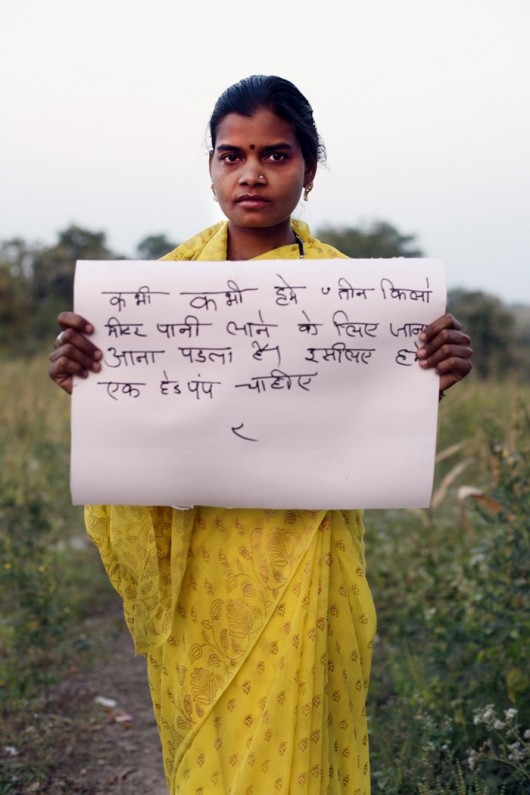 कभी कभी हमे तीन किलो
मीटर पानी लाने के लिए जाना
आना पडता है। इसीलिए हमे
एक हेडपंप चाहीए